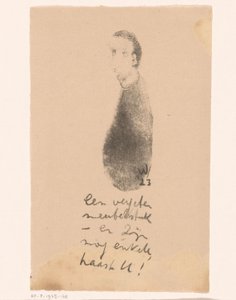 W
23
een vergeten
meubelstuk
— er zijn
nog enkele,
haast U!